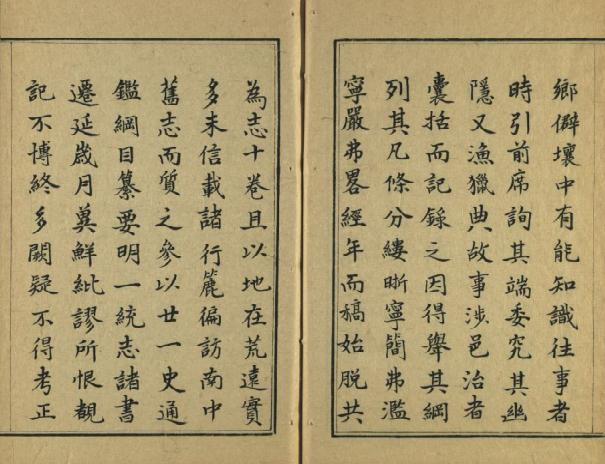 鄉僻壤中有能知識往事者
時引前席詢其端委究其幽
隱又漁獵典故事涉邑治者
囊括而記錄之因得舉其綱
列其凡條分縷晰寧簡弗濫
寧嚴弗畧經年而稿始脫共
為志十卷且以地在荒遠實
多未信載諸行簏徧訪南中
舊志而質之參以廿一史通
鑑綱目纂要明一統志諸書
遷延歲月冀鮮紕謬所恨覩
記不博終多闕疑不得考正